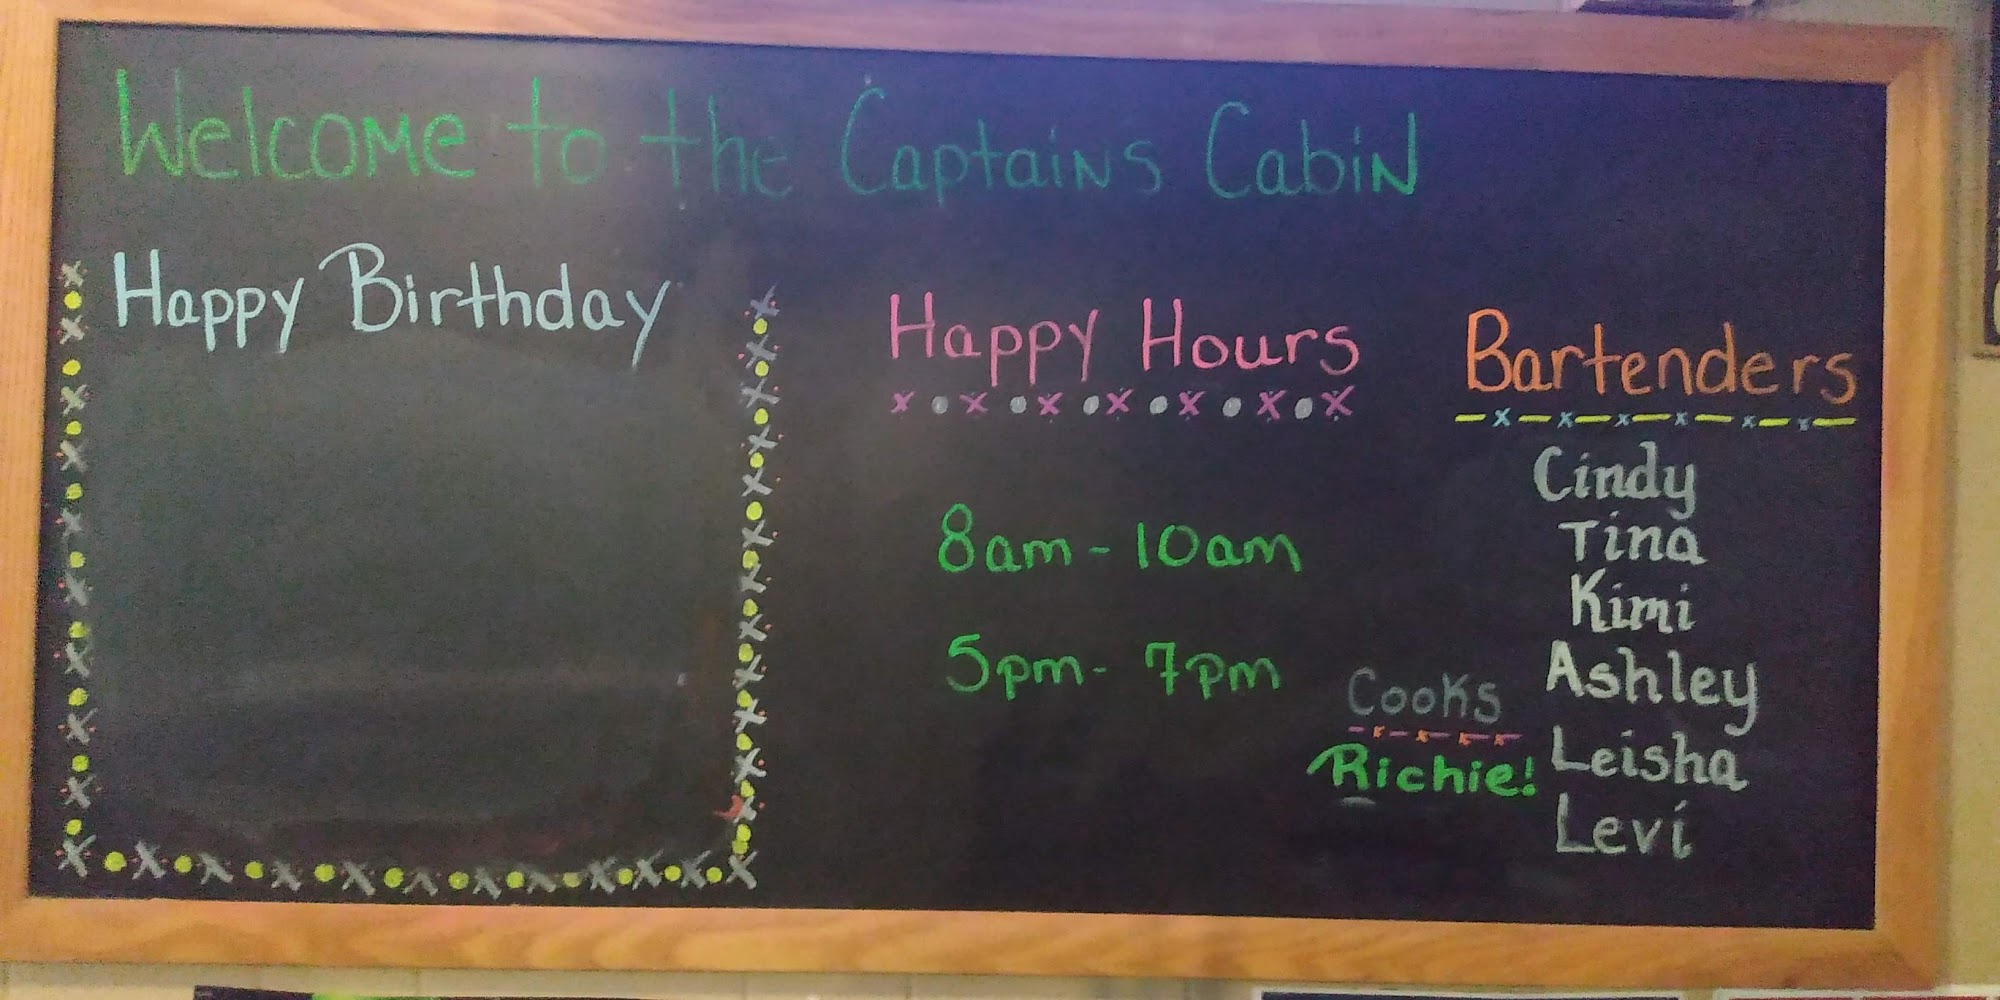 Welcome to the Captains Cabin
Happy Birthday
Happy Hours
8am - 10am
5pm - 7pm
Cooks
Richie!
Bartenders
Cindy
Tina
Kimi
Ashley
Leisha
Levi